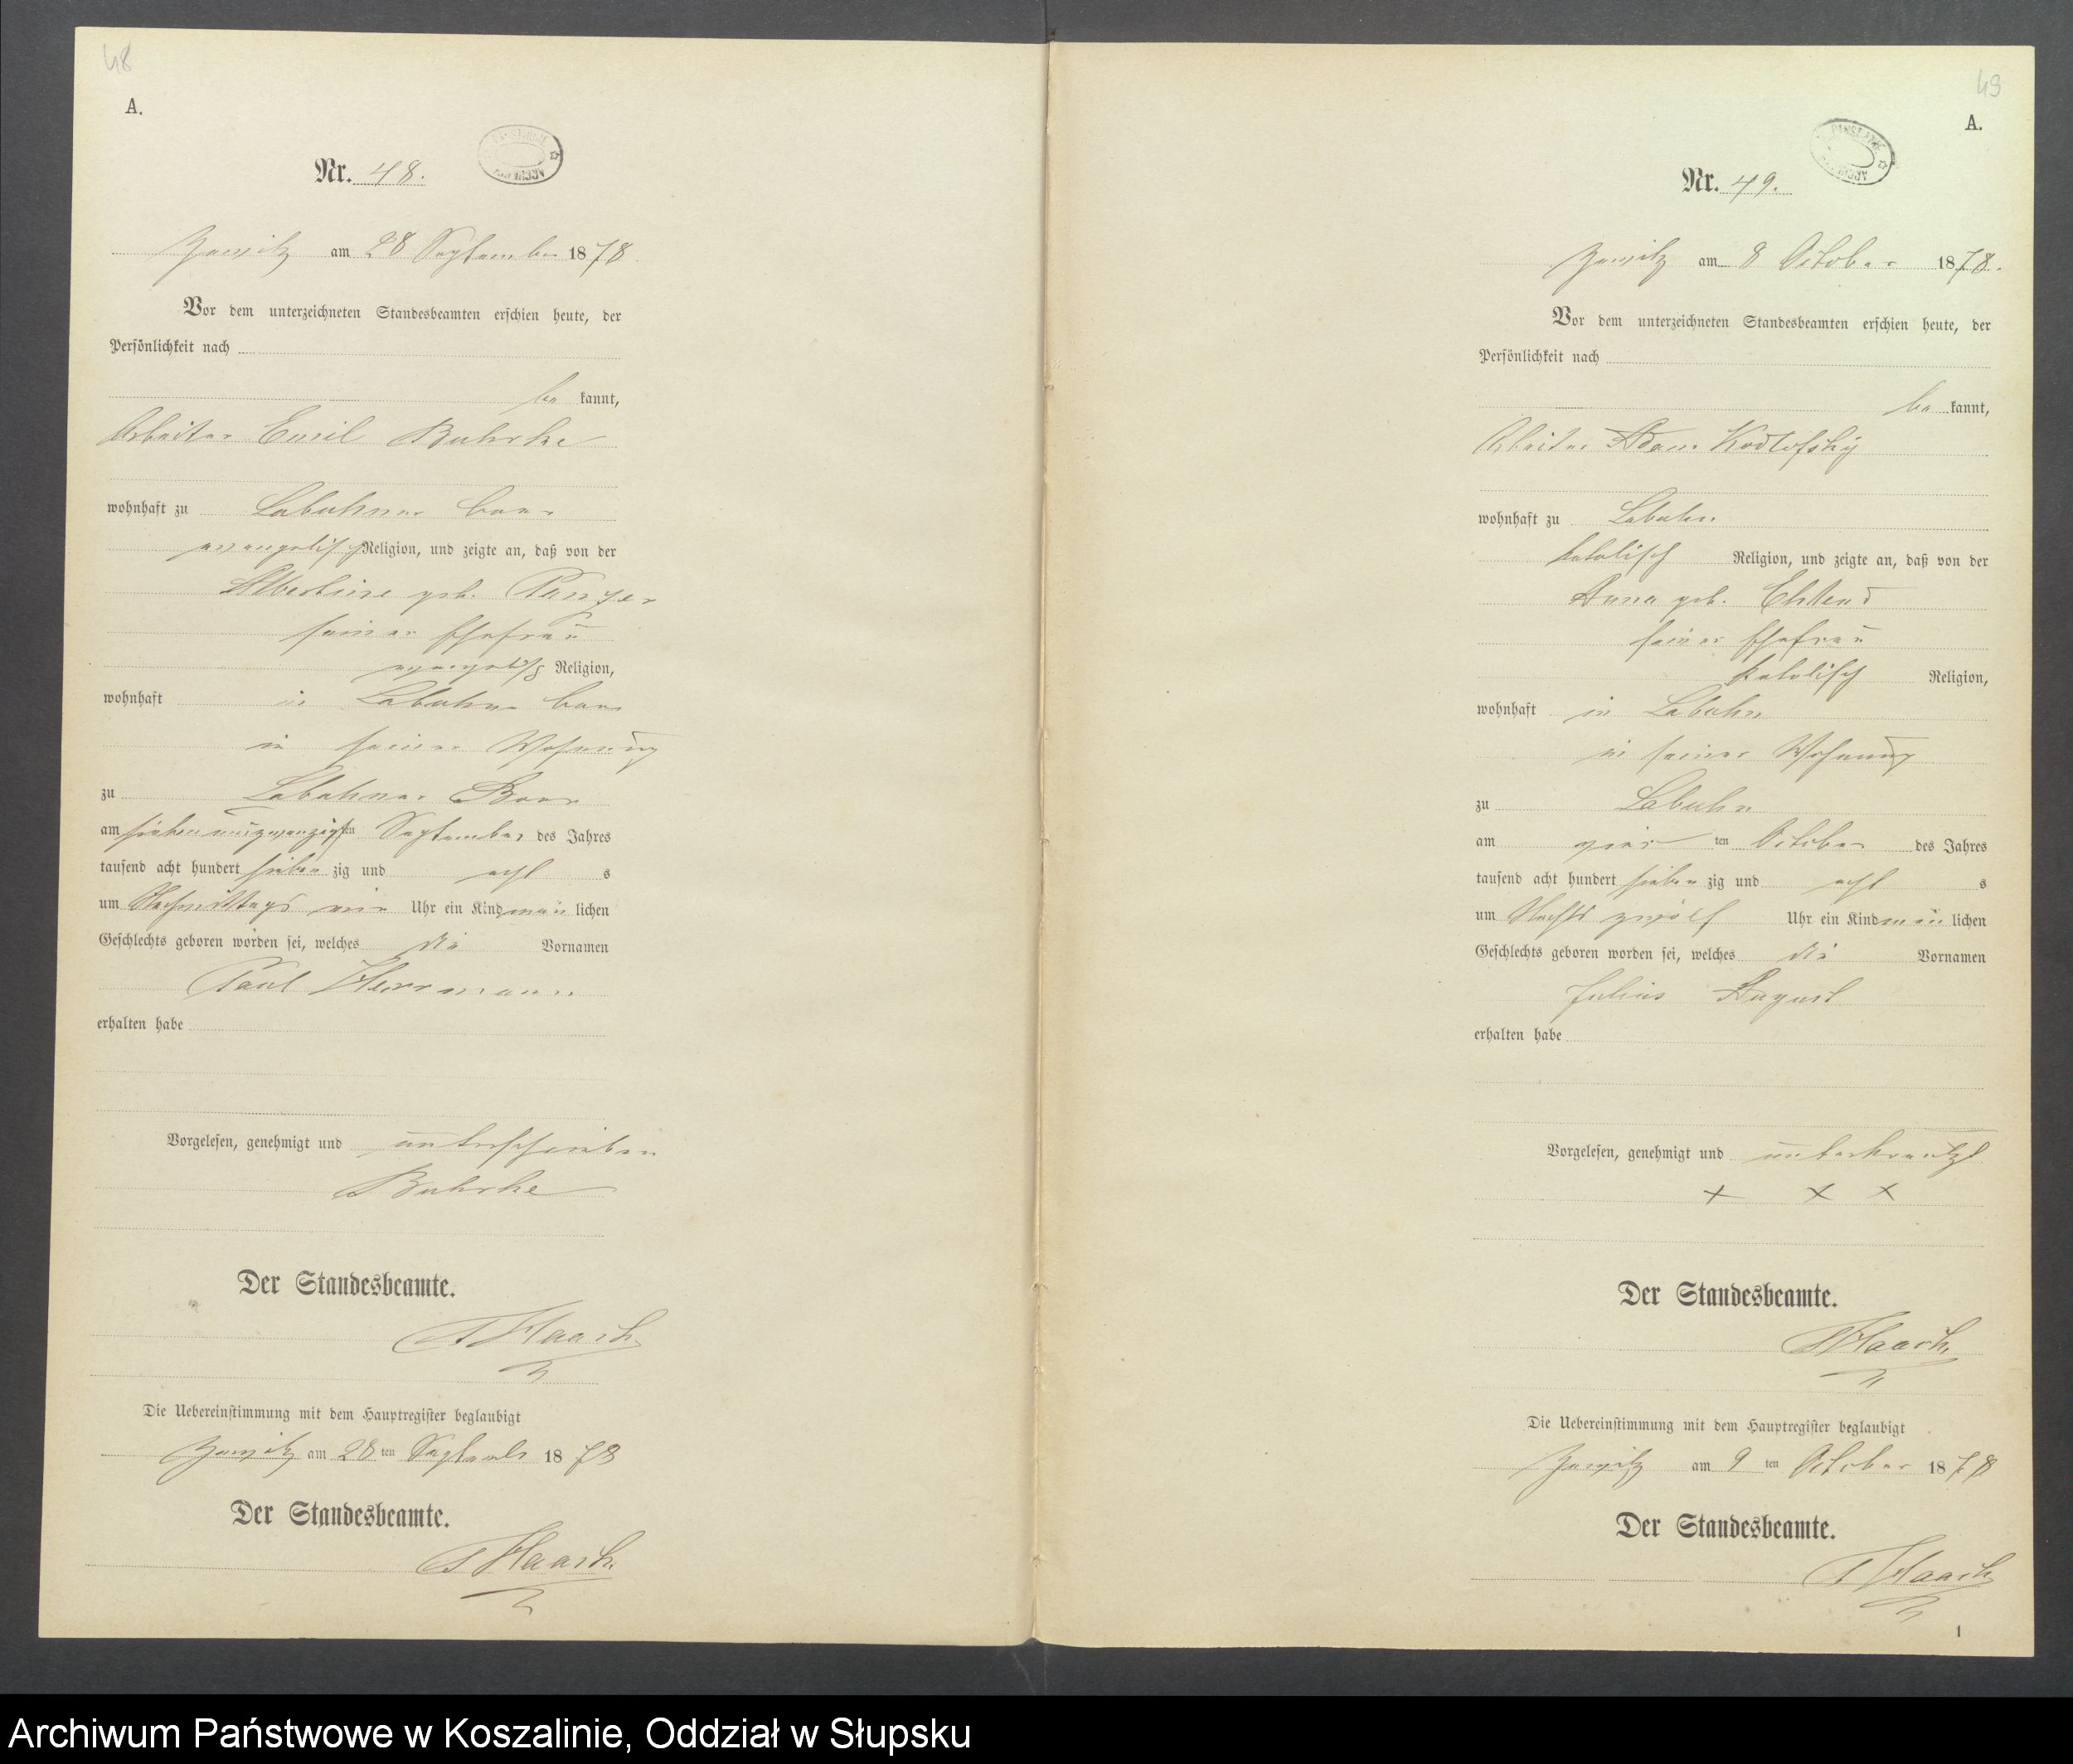 48
A.
Nr. 48.
am 28 September 1878
Vor dem unterzeichneten Standesbeamten erschien heute, der
Persönlichkeit nach
be kannt,
Arbeiter Emil Buhrke
wohnhaft zu Labuhner
evangelisch Religion, und zeigte an, daß von der
Albertine geb. Panzer
seiner Ehefrau
evangelisch Religion,
wohnhaft in Labuhner
in seiner Wohnung
zu Labuhner
am siebenundzwanzigsten September des Jahres
tausend acht hundert sieben zig und acht s
um Nachmittags Uhr ein Kind män lichen
Geschlechts geboren worden sei, welches die Vornamen
Paul Herrmann
erhalten habe
Vorgelesen, genehmigt und unterschrieben
Buhrke
Der Standesbeamte.
Haack
Die Uebereinstimmung mit dem Hauptregister beglaubigt
am 28 ten Septemb 1878
Der Standesbeamte.
Haack
49
A.
Nr. 49.
am 8 October 1878.
Vor dem unterzeichneten Standesbeamten erschien heute, der
Persönlichkeit nach
be kannt,
Arbeiter Adam
wohnhaft zu Labuhn
katolisch Religion, und zeigte an, daß von der
Anna geb.
seiner Ehefrau
katolisch Religion,
wohnhaft in Labuhn
in seiner Wohnung
zu Labuhn
am vier ten October des Jahres
tausend acht hundert sieben zig und acht s
um Nachts zwölf Uhr ein Kind män lichen
Geschlechts geboren worden sei, welches die Vornamen
Julius August
erhalten habe
Vorgelesen, genehmigt und unterkreutzt
+ x x
Der Standesbeamte.
Haack
Die Uebereinstimmung mit dem Hauptregister beglaubigt
am 9 ten October 1878
Der Standesbeamte.
Haack
1
Archiwum Państwowe w Koszalinie, Oddział w Słupsku